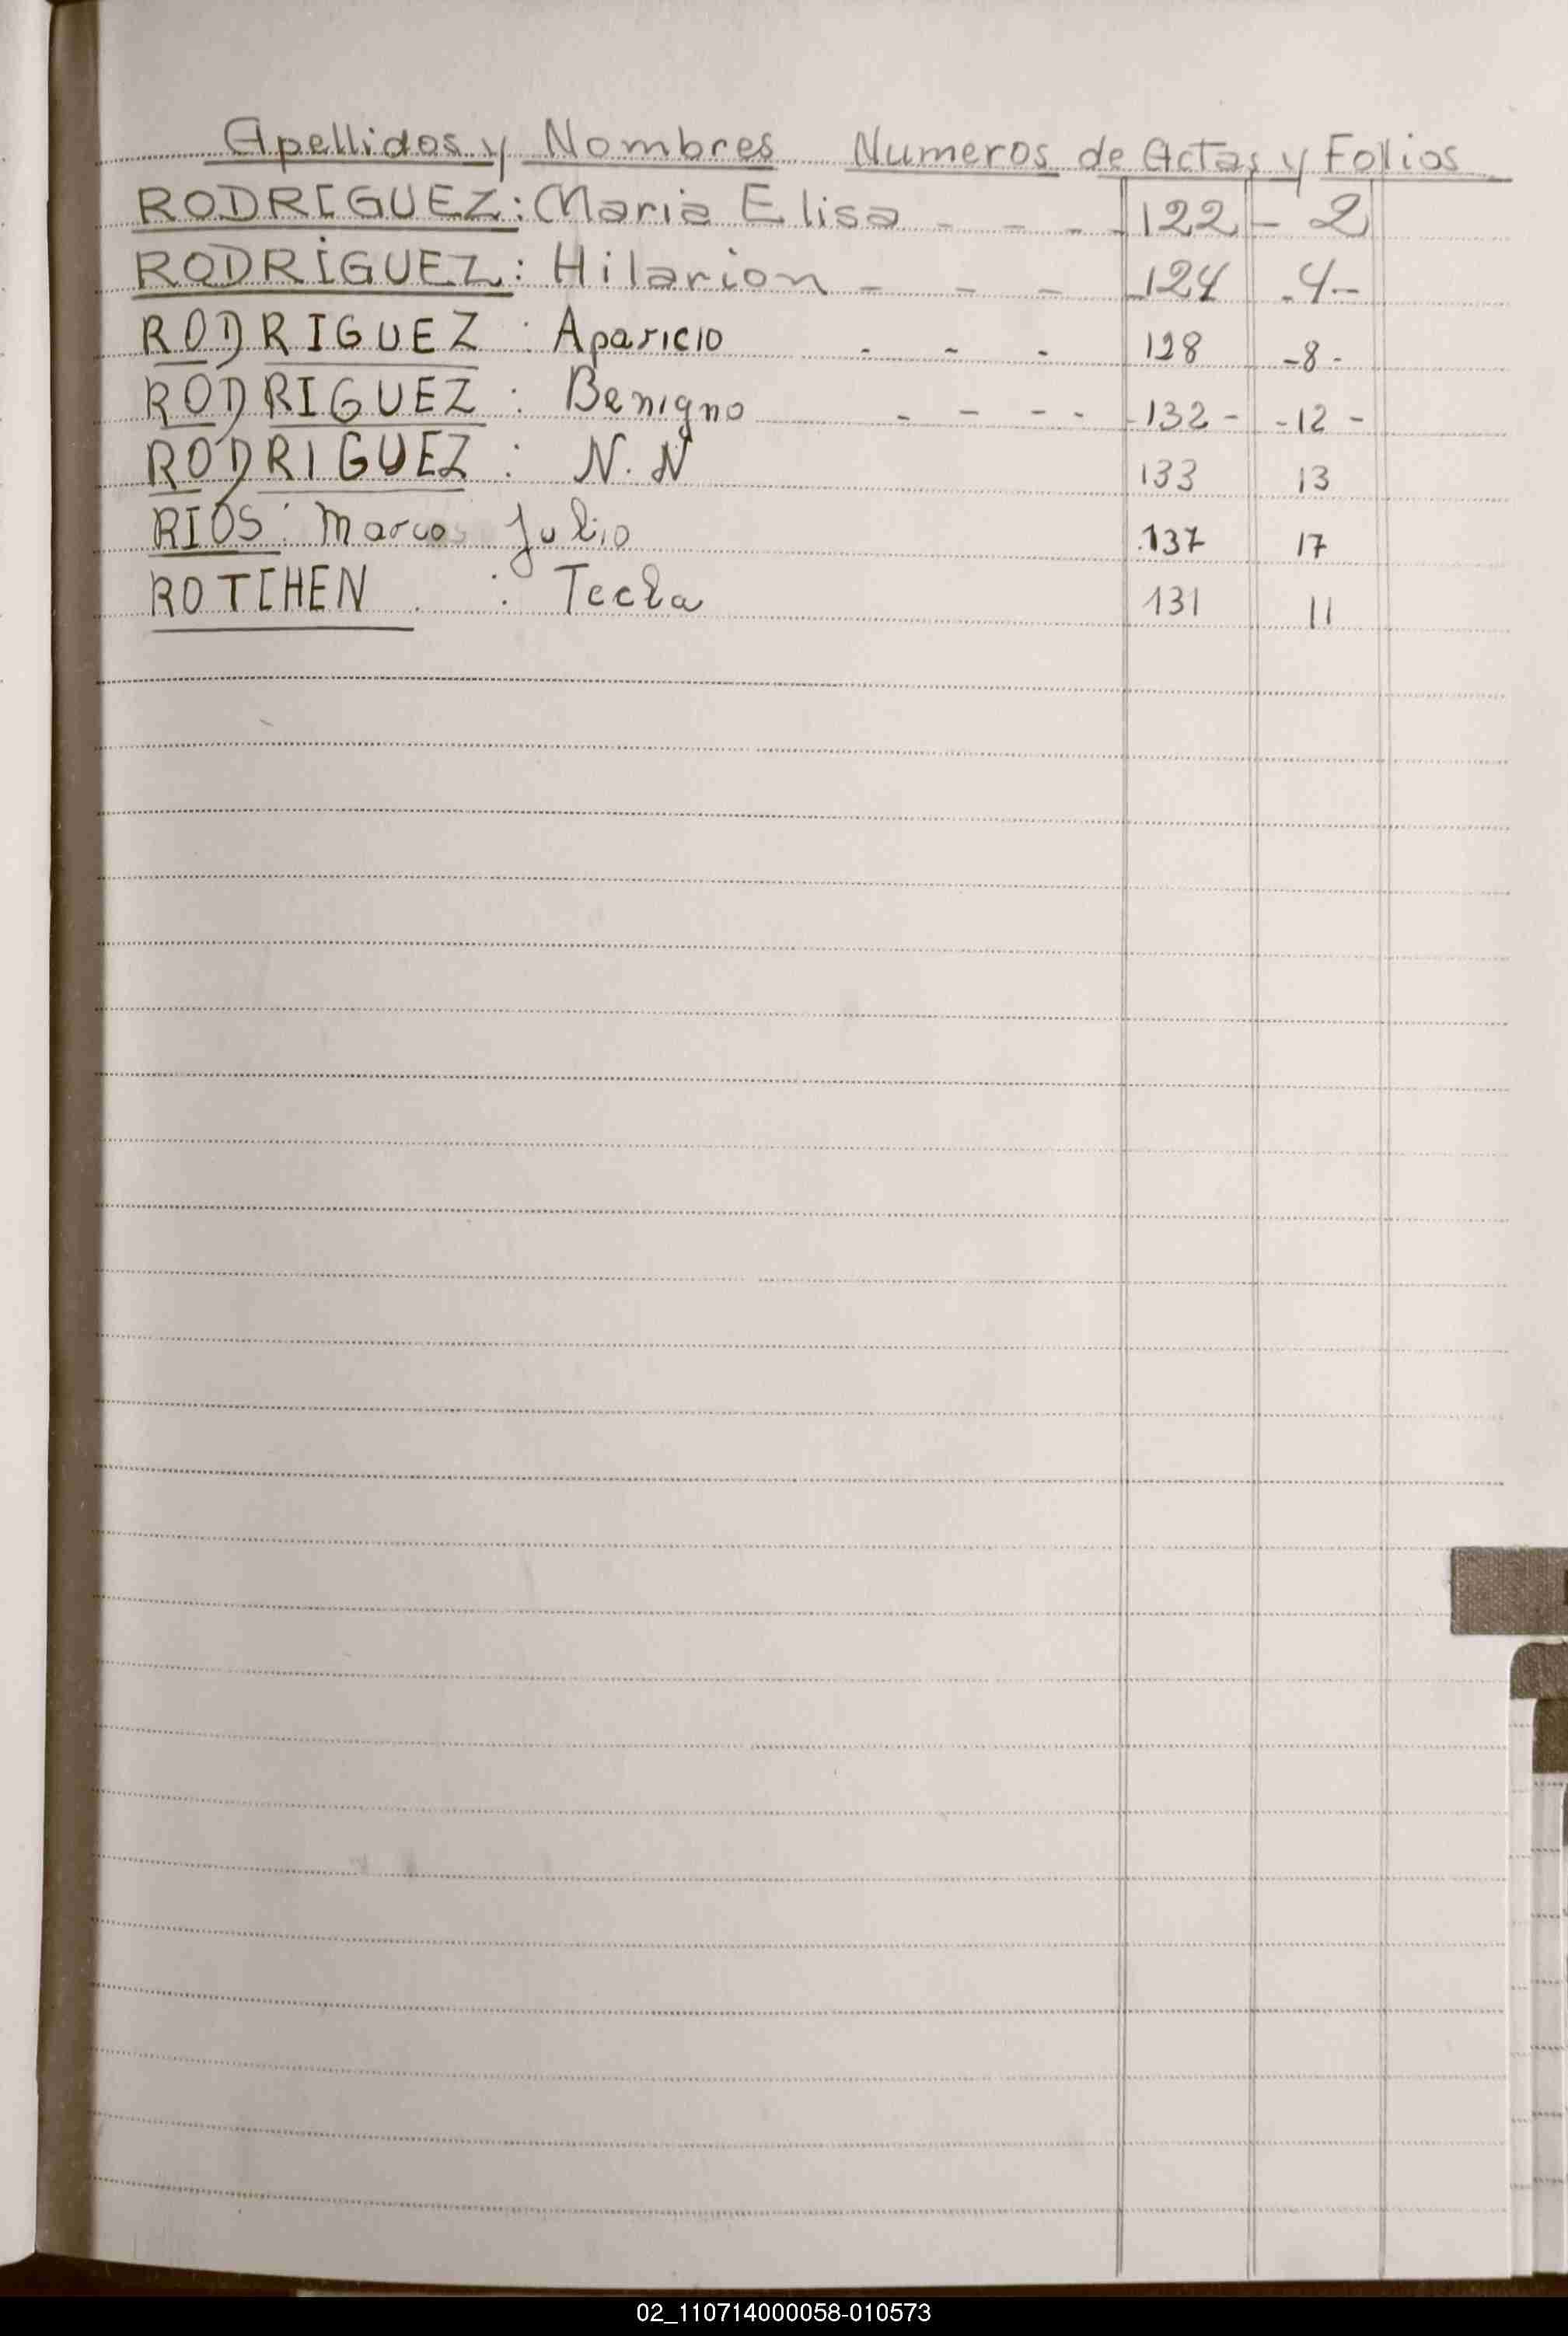 Apellidos y Nombres Numeros de Actas y Folios
RODRIGUEZ: Maria Elisa - - - - 122 - 2
RODRIGUEZ: Hilarion - - - - 124 - 4 -
RODRIGUEZ : Aparicio - - - 128 - 8 -
RODRIGUEZ : Benigno - - - - - 132 - - 12 -
RODRIGUEZ : N. N 133 13
RIOS: Marcos Julio 137 17
ROTCHEN : Tecla 131 11
02_110714000058-010573